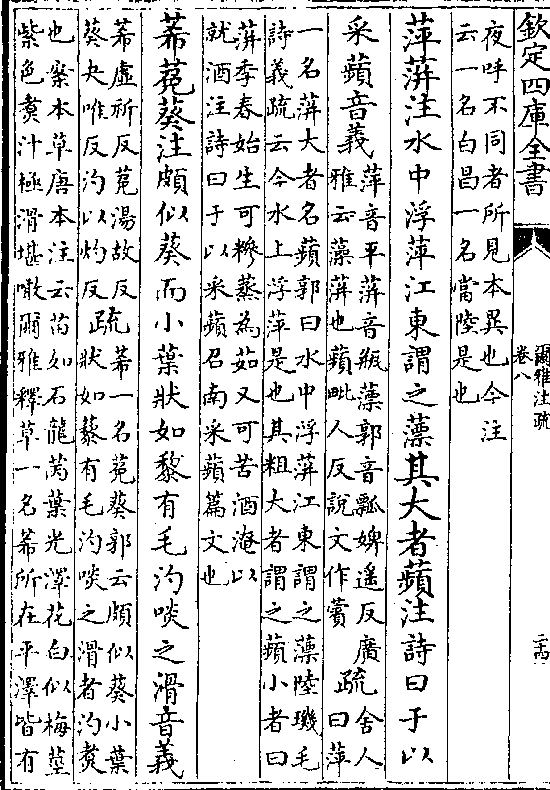 欽定四庫全書
爾雅注疏
卷八
夜呼不同者所見本異也今注
云一名白昌一名當陸是也
萍蓱注水中浮萍江東謂之薸其大者蘋注詩曰于以
采蘋音義
萍音平蓱音瓶薸郭音瓢婢遥反廣
雅云藻蓱也蘋毗人反說文作薲
舍人
疏曰萍
一名蓱大者名蘋郭曰水中浮蓱江東謂之薸陸璣毛
詩義疏云今水上浮萍是也其粗大者謂之蘋小者曰
蓱季春始生可糝蒸為茹又可苦酒淹以
就酒注詩曰于以采蘋召南采蘋篇文也
莃菟葵注頗似葵而小葉狀如藜有毛汋啖之滑音義
莃虚祈反菟湯故反
葵夬唯反汋以灼反
疏
莃一名菟葵郭云頗似葵小葉
狀如藜有毛汋啖之滑者汋煑
也案本草唐本注云苗如石龍芮葉光澤花白似梅莖
紫色煑汁極滑堪噉爾雅釋草一名莃所在平澤皆有